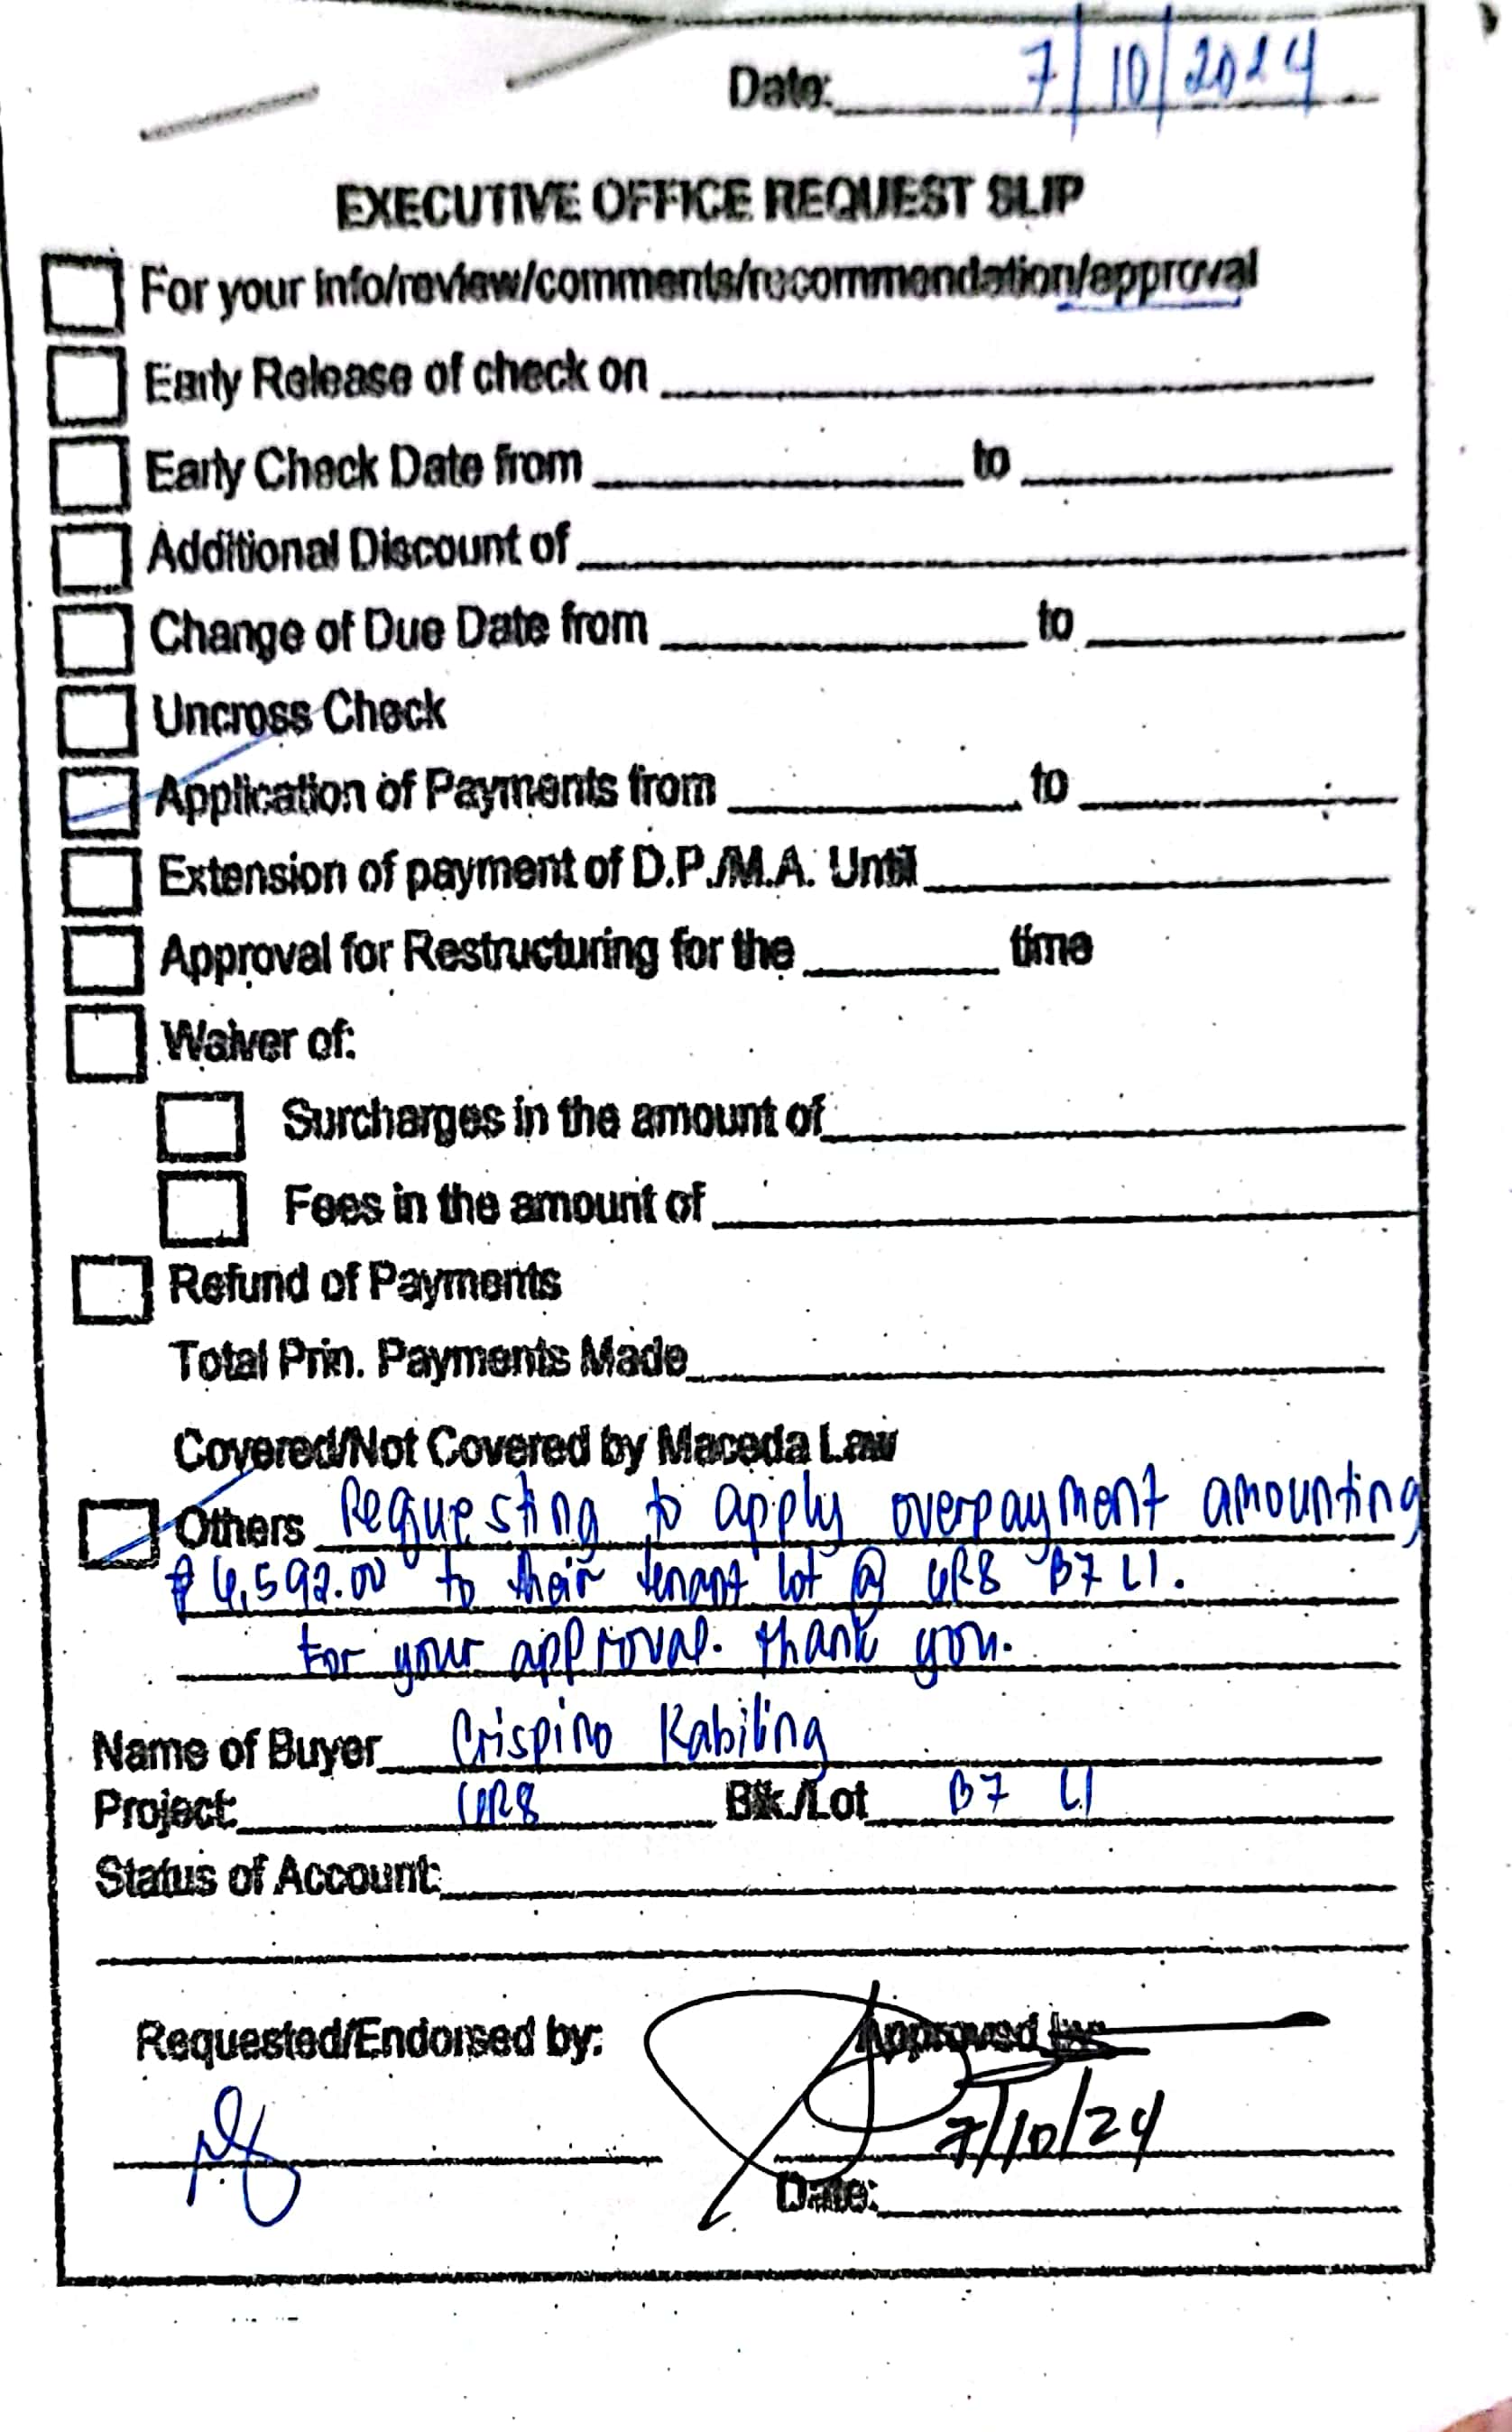 Date: 7/10/2024
EXECUTIVE OFFICE REQUEST SLIP
For your info/review/comments/recommendation/approval
Early Release of check on
Early Check Date from to
Additional Discount of
Change of Due Date from to
Uncross Check
Application of Payments from to
Extension of payment of D.P./M.A. Until
Approval for Restructuring for the time
Waiver of:
Surcharges in the amount of
Fees in the amount of
Refund of Payments
Total Prin. Payments Made
Covered/Not Covered by Maceda Law
Others Requesting to apply overpayment amounting
to their tenant lot @ B7 L1.
For your approval. Thank you.
Name of Buyer Crispino Kabiling
Project: Blk./Lot B7 L1
Status of Account:
Requested/Endorsed by: Approved by:
7/10/24
Date: